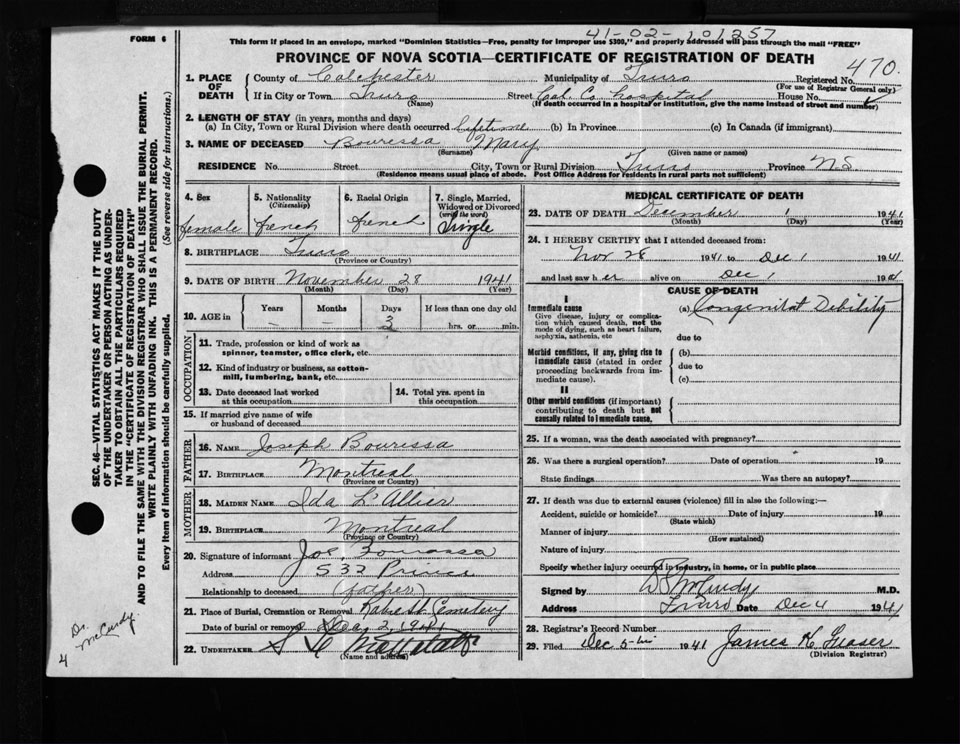 41-02-101257
FORM 6
This form if placed in an envelope, marked "Dominion Statistics—Free, penalty for improper use $300," and properly addressed will pass through the mail "FREE"
PROVINCE OF NOVA SCOTIA—CERTIFICATE OF REGISTRATION OF DEATH
1. PLACE OF DEATH County of Colchester Municipality of Truro Registered No. 470.
(For use of Registrar General only)
If in City or Town Truro Street Col. Co. Hospital House No.
(Name) (If death occurred in a hospital or institution, give the name instead of street and number)
2. LENGTH OF STAY (in years, months and days)
(a) In City, Town or Rural Division where death occurred lifetime (b) In Province (c) In Canada (if immigrant)
3. NAME OF DECEASED Bouressa Mary
(Surname) (Given name or names)
RESIDENCE No. Street City, Town or Rural Division Truro Province N.S
(Residence means usual place of abode. Post Office Address for residents in rural parts not sufficient)
4. Sex 5. Nationality (Citizenship) 6. Racial Origin 7. Single, Married, Widowed or Divorced (write the word)
female french french Single
8. BIRTHPLACE Truro
(Province or Country)
9. DATE OF BIRTH November 28 1941
(Month) (Day) (Year)
10. AGE in Years Months Days If less than one day old
3 hrs. or min.
OCCUPATION
11. Trade, profession or kind of work as spinner, teamster, office clerk, etc.
12. Kind of industry or business, as cotton-mill, lumbering, bank, etc.
13. Date deceased last worked at this occupation
14. Total yrs. spent in this occupation
15. If married give name of wife or husband of deceased
FATHER
16. NAME Joseph Bouressa
17. BIRTHPLACE Montreal
(Province or Country)
MOTHER
18. MAIDEN NAME Ida L'Allier
19. BIRTHPLACE Montreal
(Province or Country)
20. Signature of informant Joe Bourassa
Address 532 Prince
Relationship to deceased (father)
21. Place of Burial, Cremation or Removal Robie St Cemetery
Date of burial or removal Dec 2, 1941
22. UNDERTAKER
(Name and address)
MEDICAL CERTIFICATE OF DEATH
23. DATE OF DEATH December 1 1941
(Month) (Day) (Year)
24. I HEREBY CERTIFY that I attended deceased from:
Nov 28 1941 to Dec 1 1941
and last saw her alive on Dec 1 1941
CAUSE OF DEATH
I
Immediate cause (a) Congenital Debility
Give disease, injury or complication which caused death, not the mode of dying, such as heart failure, asphyxia, asthenia, etc
due to
Morbid conditions, if any, giving rise to immediate cause (stated in order proceeding backwards from immediate cause).
(b)
due to
(c)
II
Other morbid conditions (if important) contributing to death but not causally related to immediate cause.
25. If a woman, was the death associated with pregnancy?
26. Was there a surgical operation? Date of operation 19
State findings Was there an autopsy?
27. If death was due to external causes (violence) fill in also the following:—
Accident, suicide or homicide? Date of injury 19
(State which)
Manner of injury
(How sustained)
Nature of injury
Specify whether injury occurred in industry, in home, or in public place
Signed by D S McCurdy M.D.
Address Truro Date Dec 4 1941
28. Registrar's Record Number
29. Filed Dec 5th 1941 James K Fraser
(Division Registrar)
SEC. 46—VITAL STATISTICS ACT MAKES IT THE DUTY
OF THE UNDERTAKER OR PERSON ACTING AS UNDER-
TAKER TO OBTAIN ALL THE PARTICULARS REQUIRED
IN THE "CERTIFICATE OF REGISTRATION OF DEATH"
AND TO FILE THE SAME WITH THE DIVISION REGISTRAR WHO SHALL ISSUE THE BURIAL PERMIT.
WRITE PLAINLY WITH UNFADING INK. THIS IS A PERMANENT RECORD.
Every item of information should be carefully supplied. (See reverse side for instructions.)
Dr. McCurdy
4